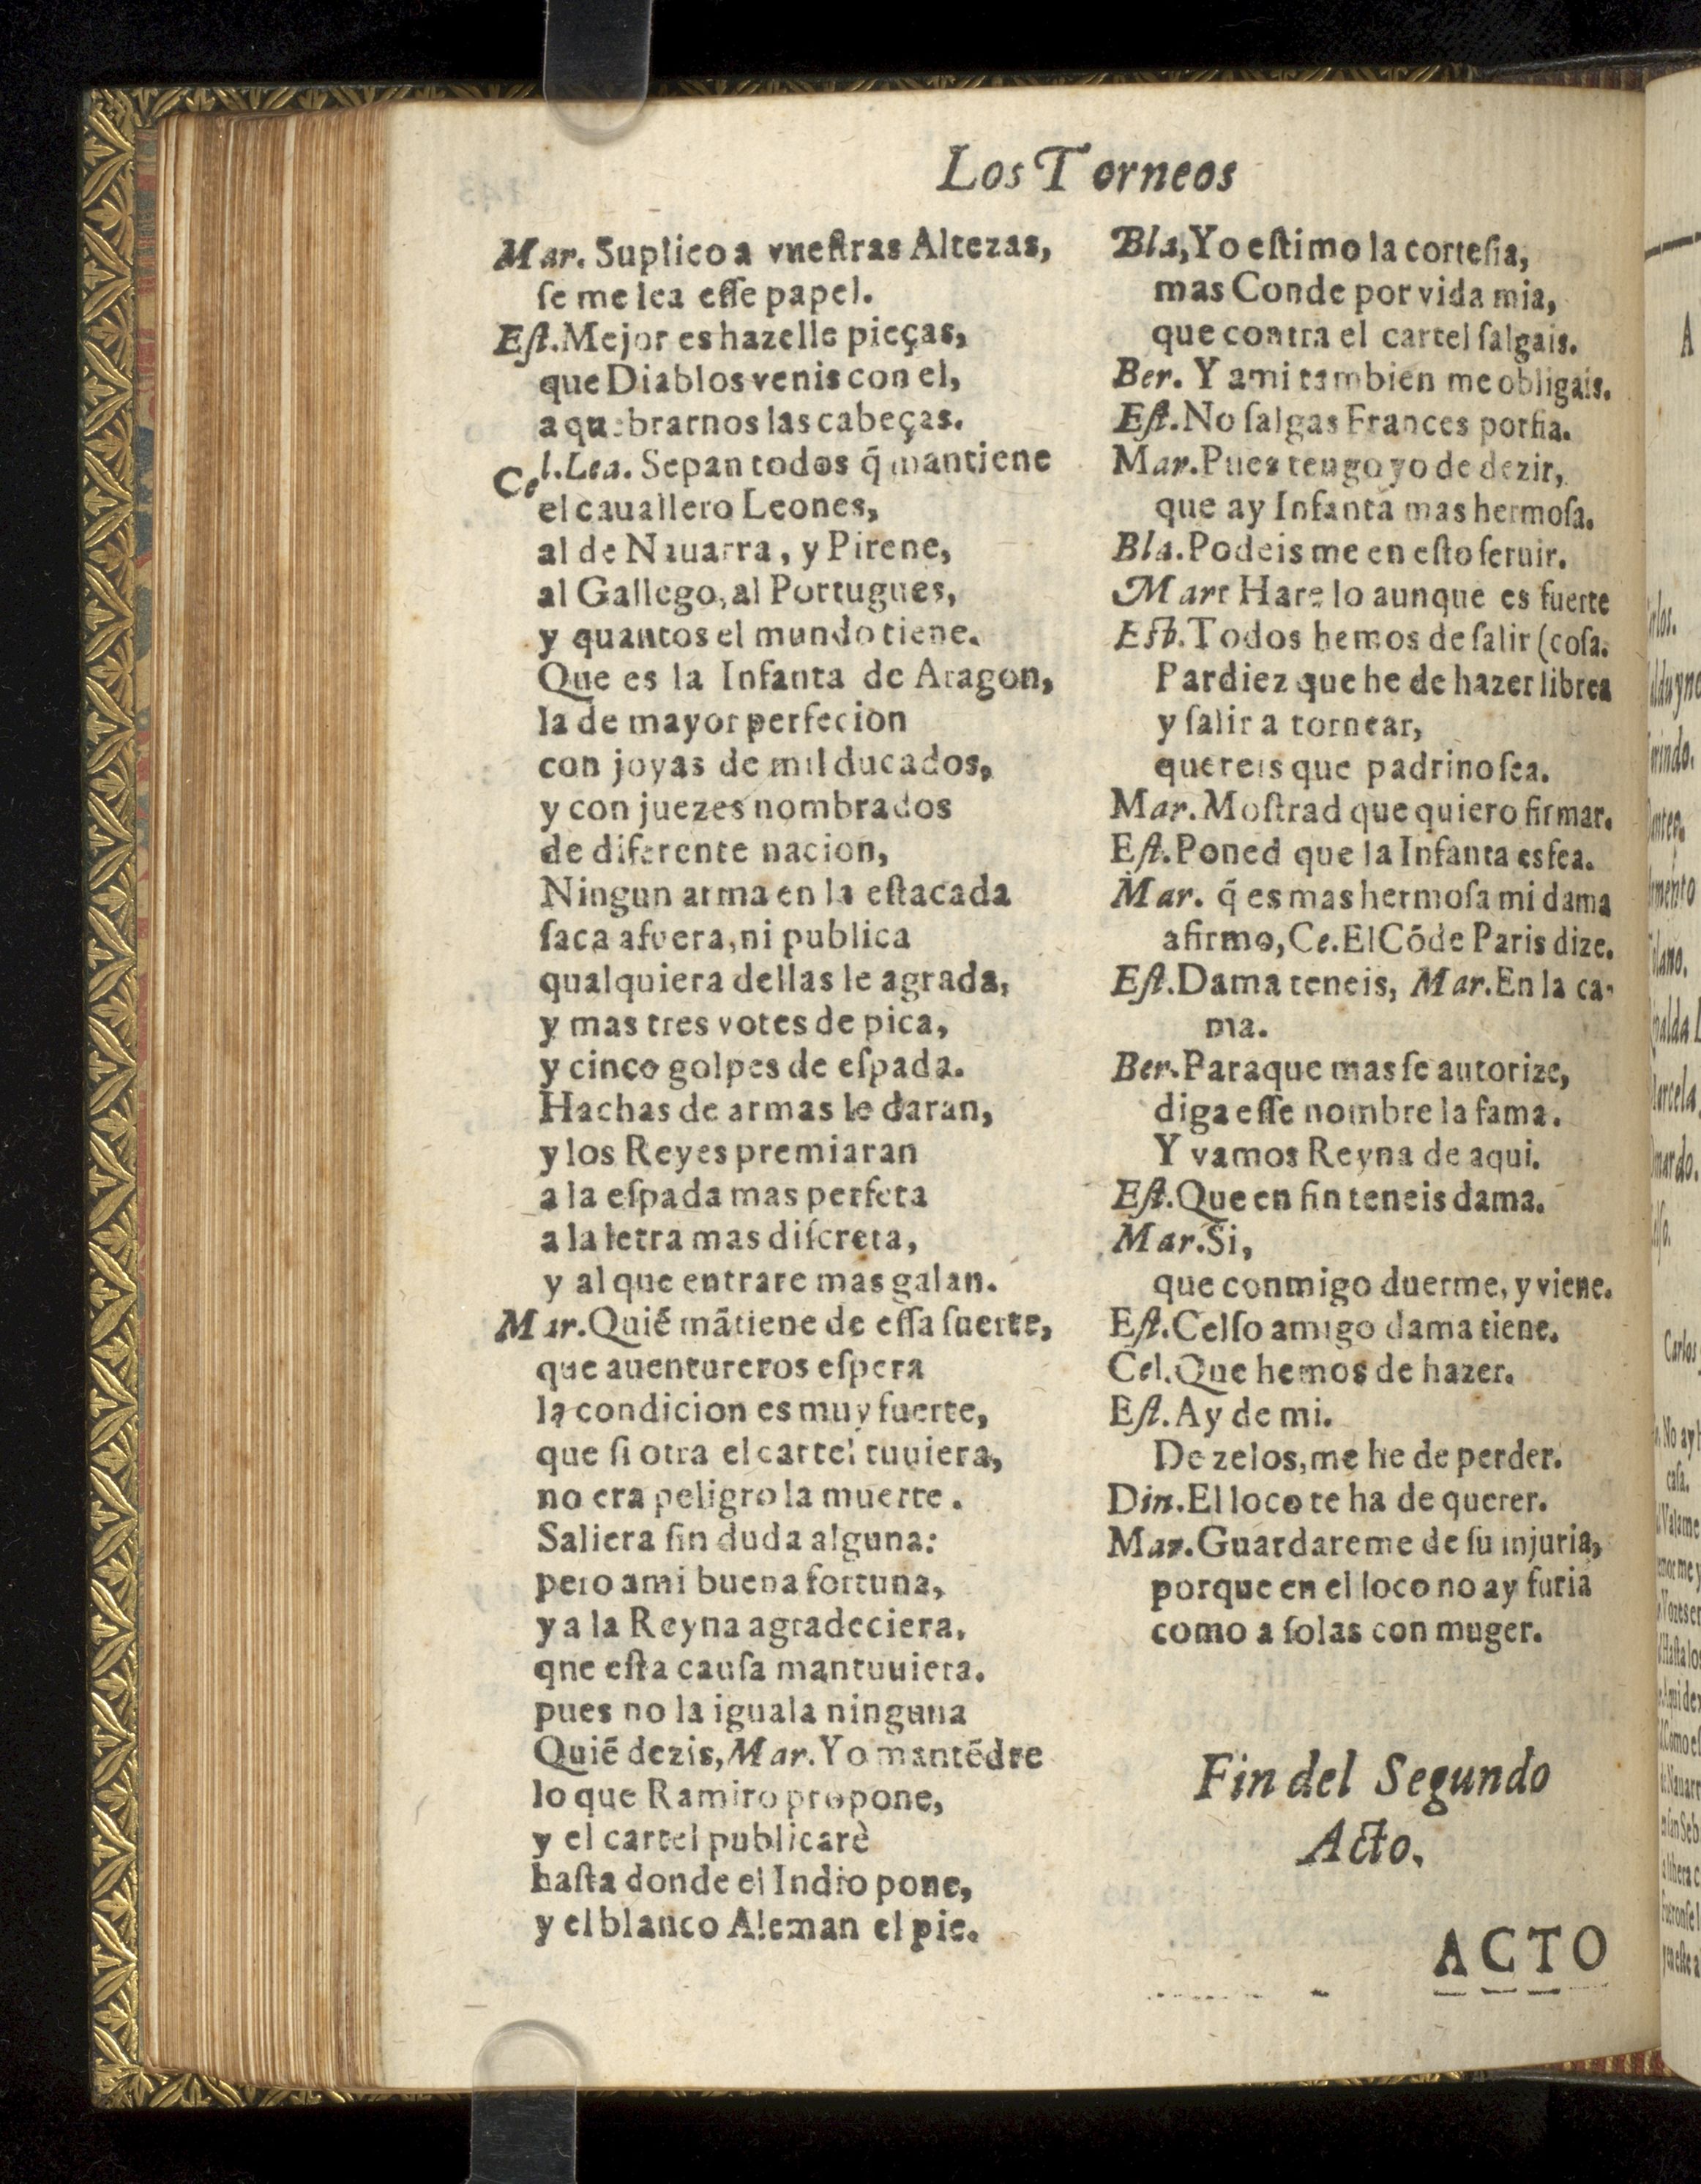 Los Torneos
Mar. Suplico a vueſtras Altezas,
ſe me lea eſſe papel.
Eſt. Mejor es hazelle pieças,
que Diablos venis con el,
a quebrarnos las cabeças.
Cel. Lea. Sepan todos q̃ mantiene
el cauallero Leones,
al de Nauarra, y Pirene,
al Gallego, al Portugues,
y quantos el mundo tiene.
Que es la Infanta de Aragon,
la de mayor perfecion
con joyas de mil ducados,
y con juezes nombrados
de diferente nacion,
Ningun arma en la eſtacada
ſaca afuera, ni publica
qualquiera dellas le agrada,
y mas tres votes de pica,
y cinco golpes de eſpada.
Hachas de armas le daran,
y los Reyes premiaran
a la eſpada mas perfeta
a la letra mas diſcreta,
y al que entrare mas galan.
Mar. Quiẽ mãtiene de eſſa ſuerte,
que auentureros eſpera
la condicion es muy fuerte,
que ſi otra el cartel tuuiera,
no era peligro la muerte.
Saliera ſin duda alguna:
pero a mi buena fortuna,
y a la Reyna agradeciera,
qne eſta cauſa mantuuiera.
pues no la iguala ninguna
Quiẽ dezis, Mar. Yo mantẽdre
lo que Ramiro propone,
y el cartel publicarè
haſta donde el Indio pone,
y el blanco Aleman el pie.
Bla, Yo eſtimo la corteſia,
mas Conde por vida mia,
que contra el cartel ſalgais.
Ber. Y a mi tambien me obligais.
Eſt. No ſalgas Frances porfia.
Mar. Pues tengo yo de dezir,
que ay Infanta mas hermoſa.
Bla. Podeis me en eſto ſeruir.
Mar: Hare lo aunque es fuerte
Eſt. Todos hemos de ſalir (coſa.
Pardiez que he de hazer librea
y ſalir a tornear,
quereis que padrino ſea.
Mar. Moſtrad que quiero firmar.
Eſt. Poned que la Infanta es fea.
Mar. q̃ es mas hermoſa mi dama
afirmo, Ce. El Cõde Paris dize.
Eſt. Dama teneis, Mar. En la ca-
ma.
Ber. Paraque mas ſe autorize,
diga eſſe nombre la fama.
Y vamos Reyna de aqui.
Eſt. Que en fin teneis dama.
Mar. Si,
que conmigo duerme, y viene.
Eſt. Celſo amigo dama tiene.
Cel. Que hemos de hazer.
Eſt. Ay de mi.
De zelos, me he de perder.
Din. El loco te ha de querer.
Mar. Guardareme de ſu injuria,
porque en el loco no ay furia
como a ſolas con muger.
Fin del Segundo
Acto.
ACTO